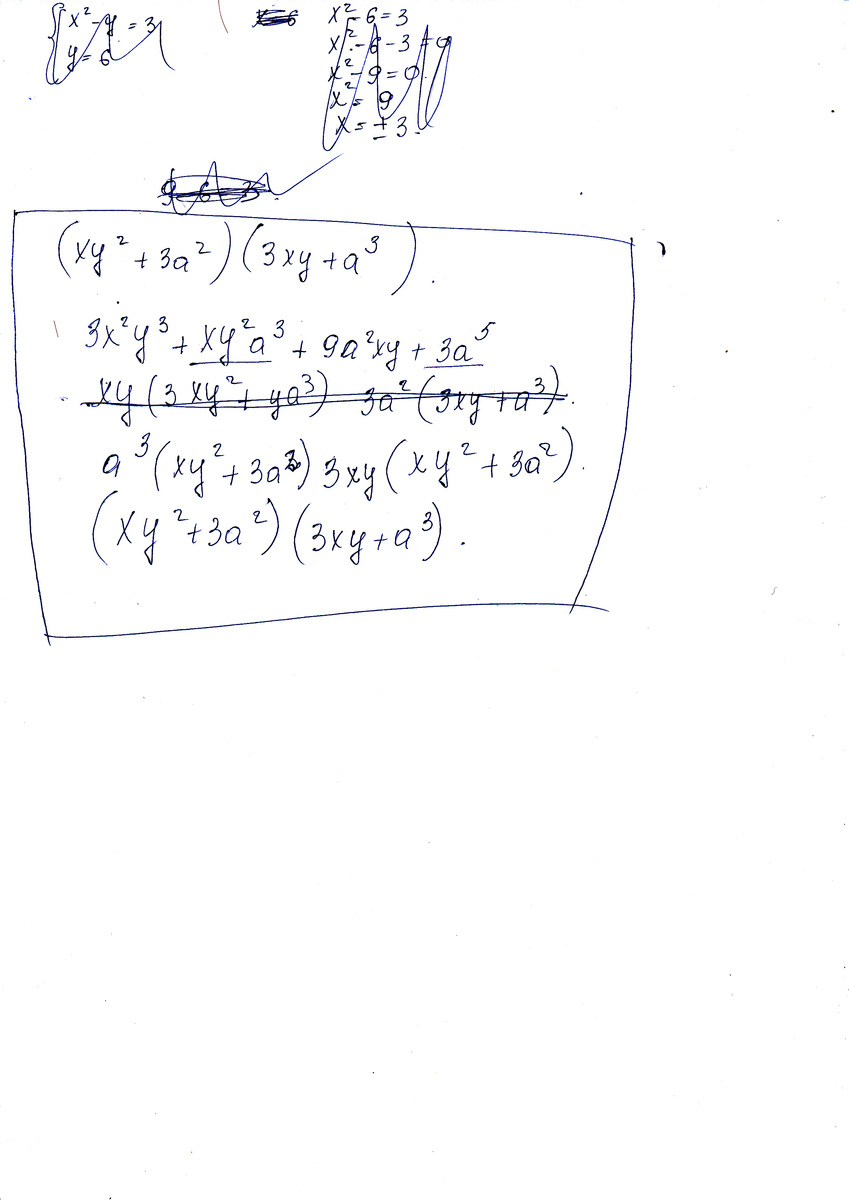 x² - y = 3
y = 6
x² - 6 = 3
x² - 6 - 3 = 0
x² - 9 = 0
x² = 9
x = ± 3.
9 - 6 = 3
(xy² + 3a²)(3xy + a³).
3x²y³ + xy²a³ + 9a²xy + 3a⁵
xy(3xy² + ya³) 3a²(3xy + a³).
a³(xy² + 3a²) 3xy(xy² + 3a²).
(xy² + 3a²)(3xy + a³).